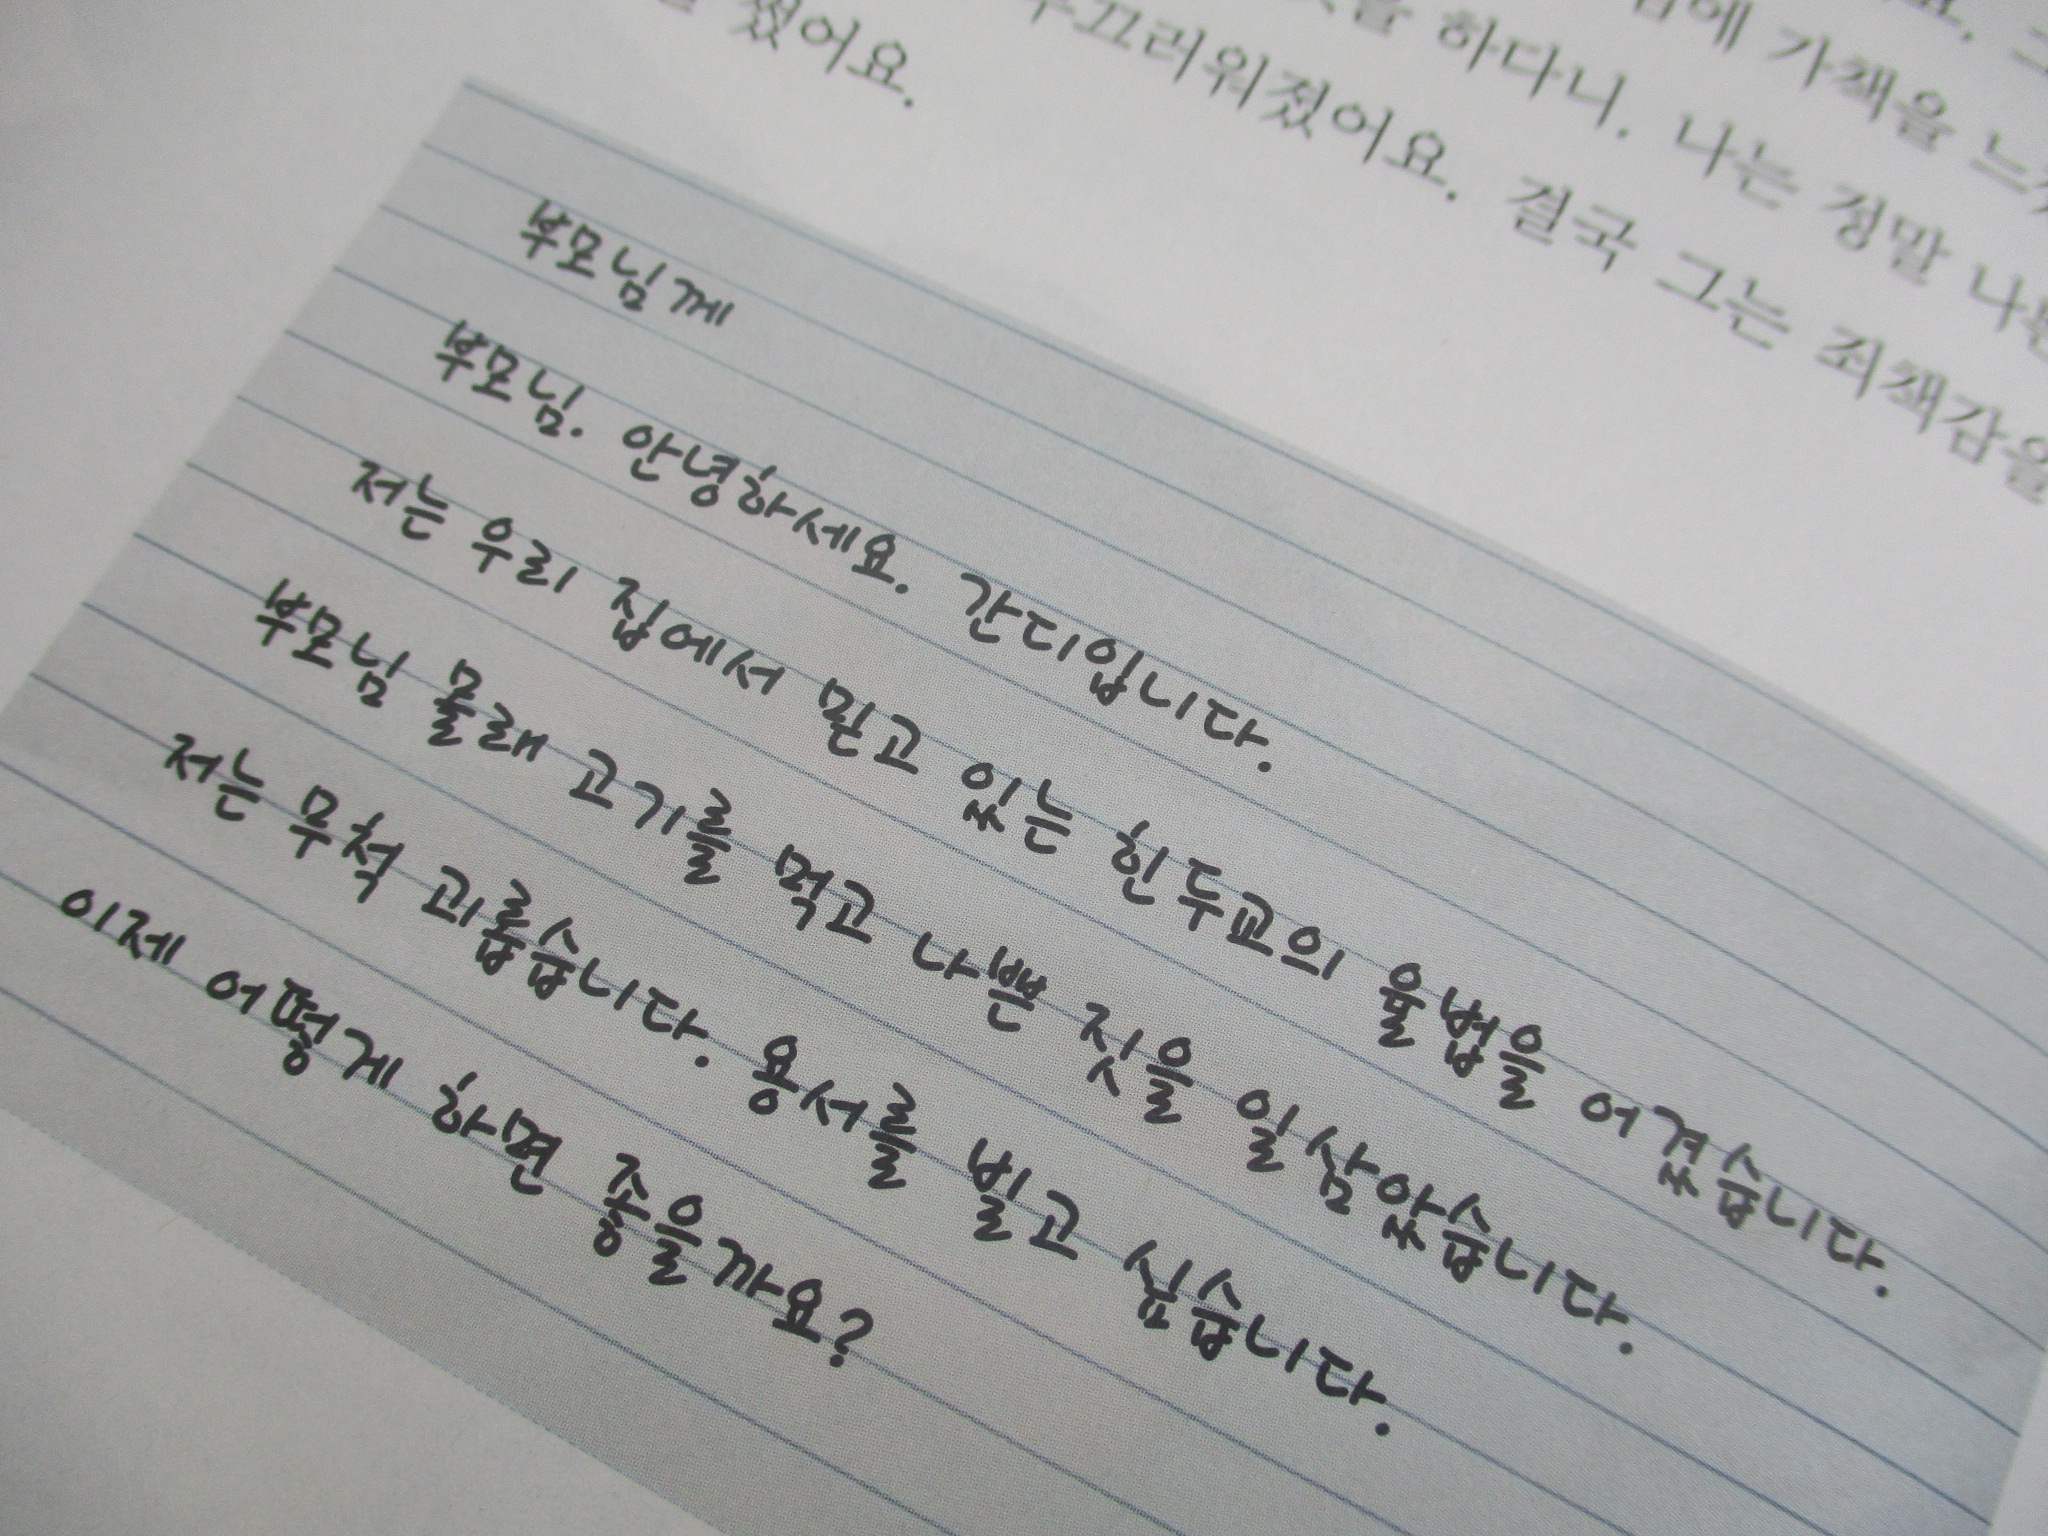 가책을
하다니. 나는 정말
부끄러워졌어요. 결국 그는 죄책감을
쪘어요.
부모님께
부모님. 안녕하세요. 간디입니다.
저는 우리 집에서 믿고 있는 힌두교의 율법을 어겼습니다.
부모님 몰래 고기를 먹고 나쁜 짓을 일삼았습니다.
저는 무척 괴롭습니다. 용서를 빌고 싶습니다.
이제 어떻게 하면 좋을까요?